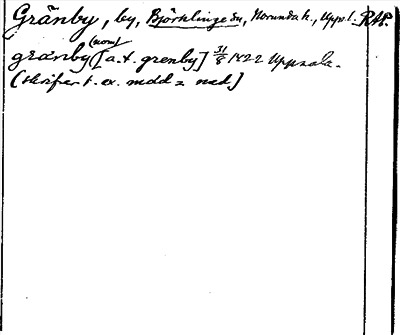 Gränby, by, Björklinge sn, Norunda h., Uppl. RAP.
(nom)
gränby [a.t. grenby] 31/8 1422 Uppsala.
(skrifver t. ex. mdd = med]